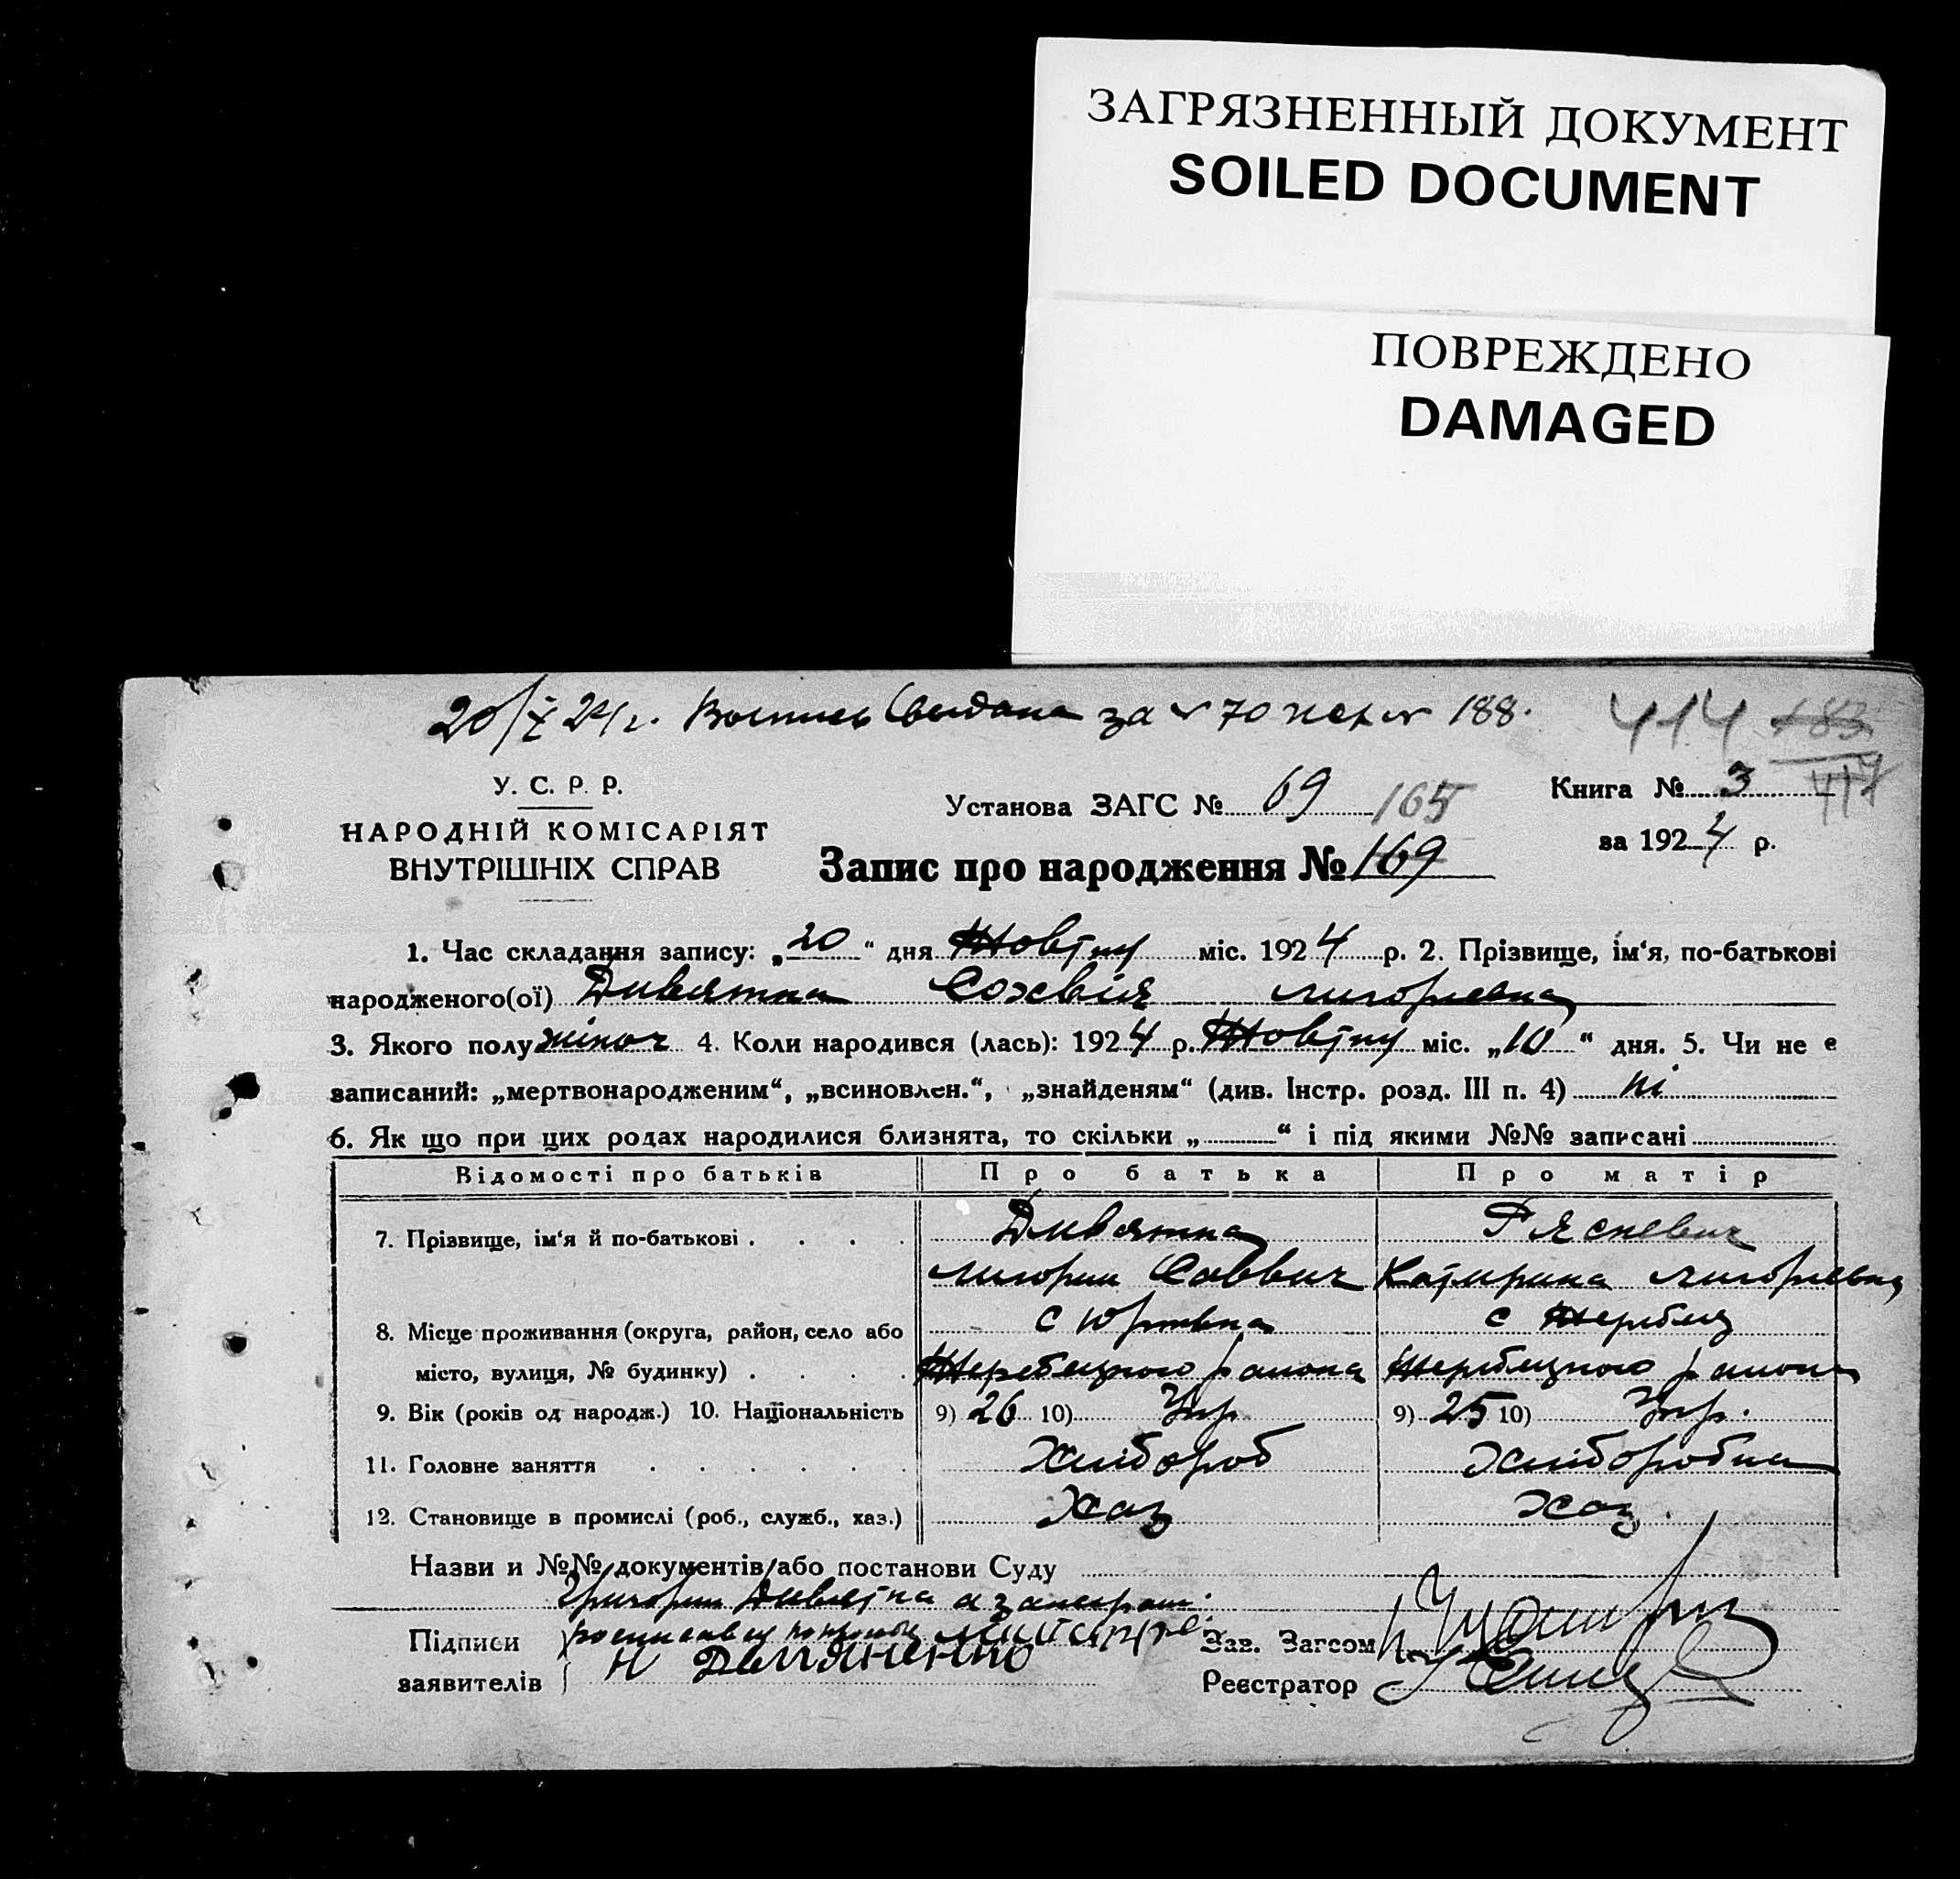 ЗАГРЯЗНЕННЫЙ ДОКУМЕНТ
SOILED DOCUMENT
ПОВРЕЖДЕНО
DAMAGED
20/X 24 г. за № 70 188.
414 183
У. С. Р. Р.
НАРОДНІЙ КОМІСАРІЯТ
ВНУТРІШНІХ СПРАВ
Установа ЗАГС № 69 165
Книга № 3
за 1924 р.
Запис про народження № 169
1. Час складання запису: „20“ дня Жовтну міс. 1924 р. 2. Прізвище, ім‘я, по-батькові
народженого(ої) Дивятка Сохвія Лигориевна
3. Якого полу жіноч 4. Коли народився (лась): 1924 р. Жовтну міс. „10“ дня. 5. Чи не є
записаний: „мертвонародженим“, „всиновлен.“, „знайденям“ (див. Інстр. розд. III п. 4) ні
6. Як що при цих родах народилися близнята, то скільки „ “ і під якими №№ записані
Відомості про батьків Про батька Про матір
7. Прізвище, ім‘я й по-батькові . . . . Дивятка
Лигории Саввич Катирина Лигориевна
8. Місце проживання (округа, район, село або с Юрівка с Жеребец
місто, вулиця, № будинку) . . . . Жеребецкого раиона Жеребецкого раиона
9. Вік (років од народж.) 10. Національність 9) 26 10) Укр 9) 25 10) Укр.
11. Головне заняття . . . . . . Хлібороб Хліборобка
12. Становище в промислі (роб., служб., хаз.) Хаз Хаз.
Назви и №№ документів/або постанови Суду
Григории Дивятка а
Підписи
заявителів
Зав. Загсом
Реєстратор